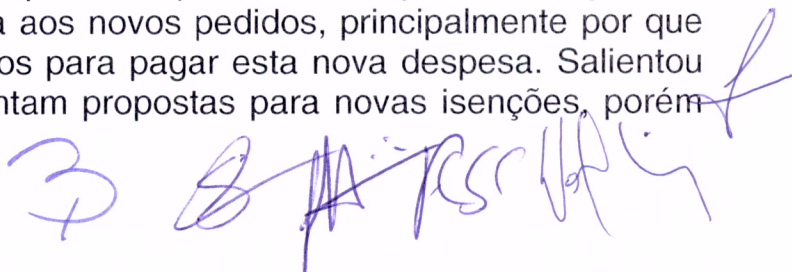 a aos novos pedidos, principalmente por que
os para pagar esta nova despesa. Salientou
ntam propostas para novas isenções, porém